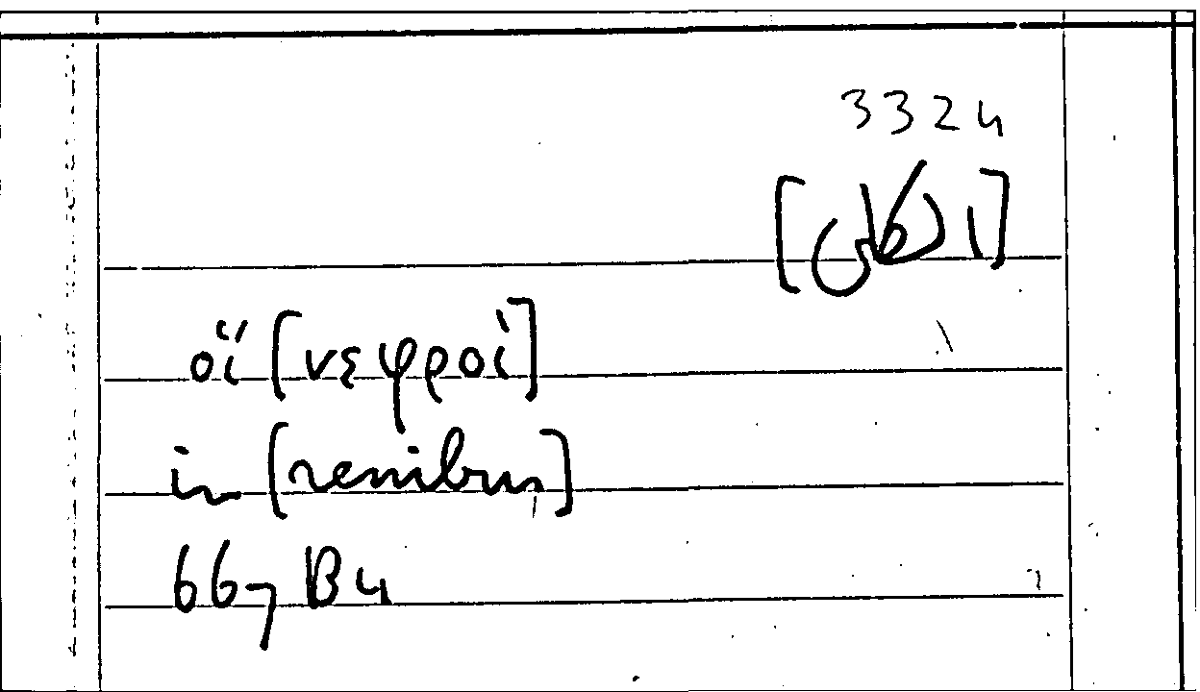 3324
οἵ [νεφροί]
in [renibus]
667 B4